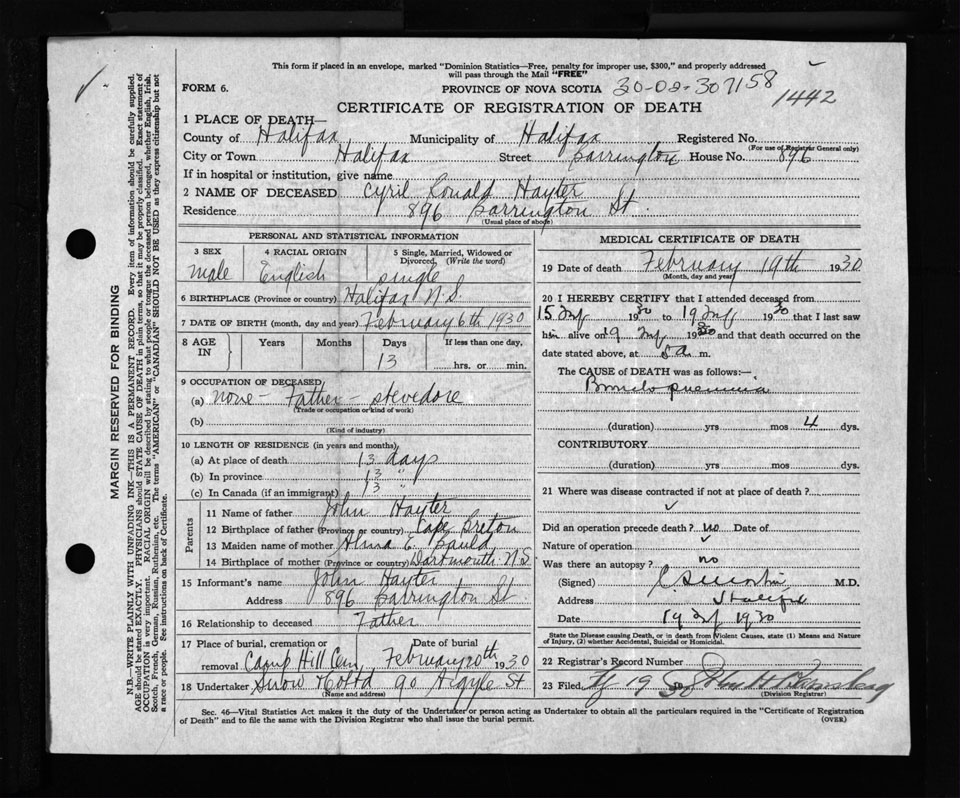 This form if placed in an envelope, marked "Dominion Statistics—Free, penalty for improper use, $300," and properly addressed
will pass through the Mail "FREE"
FORM 6.
PROVINCE OF NOVA SCOTIA 30-02-307158
1442
CERTIFICATE OF REGISTRATION OF DEATH
1 PLACE OF DEATH—
County of Halifax Municipality of Halifax Registered No.
(For use of Registrar General only)
City or Town Halifax Street Barrington House No. 896
If in hospital or institution, give name
2 NAME OF DECEASED Cyril Ronald Hayter
Residence 896 Barrington St.
(Usual place of abode)
PERSONAL AND STATISTICAL INFORMATION
3 SEX 4 RACIAL ORIGIN 5 Single, Married, Widowed or Divorced. (Write the word)
male English single
6 BIRTHPLACE (Province or country) Halifax N.S.
7 DATE OF BIRTH (month, day and year) February 6th 1930
8 AGE IN Years Months Days If less than one day,
13 hrs. or min.
9 OCCUPATION OF DECEASED
(a) none - Father - stevedore
(Trade or occupation or kind of work)
(b)
(Kind of industry)
10 LENGTH OF RESIDENCE (in years and months)
(a) At place of death 13 days
(b) In province 13 "
(c) In Canada (if an immigrant) 13
Parents
11 Name of father John Hayter
12 Birthplace of father (Province or country) Cape Breton
13 Maiden name of mother Alma E. Bauld
14 Birthplace of mother (Province or country) Dartmouth N.S
15 Informant's name John Hayter
Address 896 Barrington St
16 Relationship to deceased Father
17 Place of burial, cremation or removal Camp Hill Cem. Date of burial February 20th 1930
18 Undertaker Snow & Co Ltd 90 Argyle St
(Name and address)
MEDICAL CERTIFICATE OF DEATH
19 Date of death February 19th 1930
(Month, day and year)
20 I HEREBY CERTIFY that I attended deceased from
15 1930 to 19 1930 that I last saw
him alive on 19 1930 and that death occurred on the
date stated above, at 5 a. m.
The CAUSE of DEATH was as follows:—
Broncho pneumonia
(duration) yrs mos 4 dys.
CONTRIBUTORY
(duration) yrs mos dys.
21 Where was disease contracted if not at place of death?
Did an operation precede death? no Date of
Nature of operation
Was there an autopsy? no
(Signed) M.D.
Address Halifax
Date 19 1930
State the Disease causing Death, or in death from Violent Causes, state (1) Means and Nature
of Injury, (2) whether Accidental, Suicidal or Homicidal.
22 Registrar's Record Number
23 Filed 19
(Division Registrar)
Sec. 46—Vital Statistics Act makes it the duty of the Undertaker or person acting as Undertaker to obtain all the particulars required in the "Certificate of Registration
of Death" and to file the same with the Division Registrar who shall issue the burial permit.
(OVER)
MARGIN RESERVED FOR BINDING
N.B.—WRITE PLAINLY WITH UNFADING INK—THIS IS A PERMANENT RECORD. Every item of information should be carefully supplied.
AGE should be stated EXACTLY. PHYSICIANS should STATE CAUSE OF DEATH in plain terms, so that it may be properly classified. Exact statement of
OCCUPATION is very important. RACIAL ORIGIN will be described by stating to what people or tongue the deceased person belonged, whether English, Irish,
Scotch, French, German, Russian, Ruthenian, etc. The terms "AMERICAN" or "CANADIAN" SHOULD NOT BE USED as they express citizenship but not
a race or people. See instructions on back of Certificate.